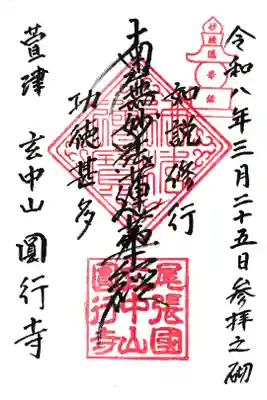 令和八年三月二十五日参拝之砌
如説修行
南無妙法蓮華経
功徳甚多
萱津 玄中山 圓行寺
尾張國
玄中山
圓行寺